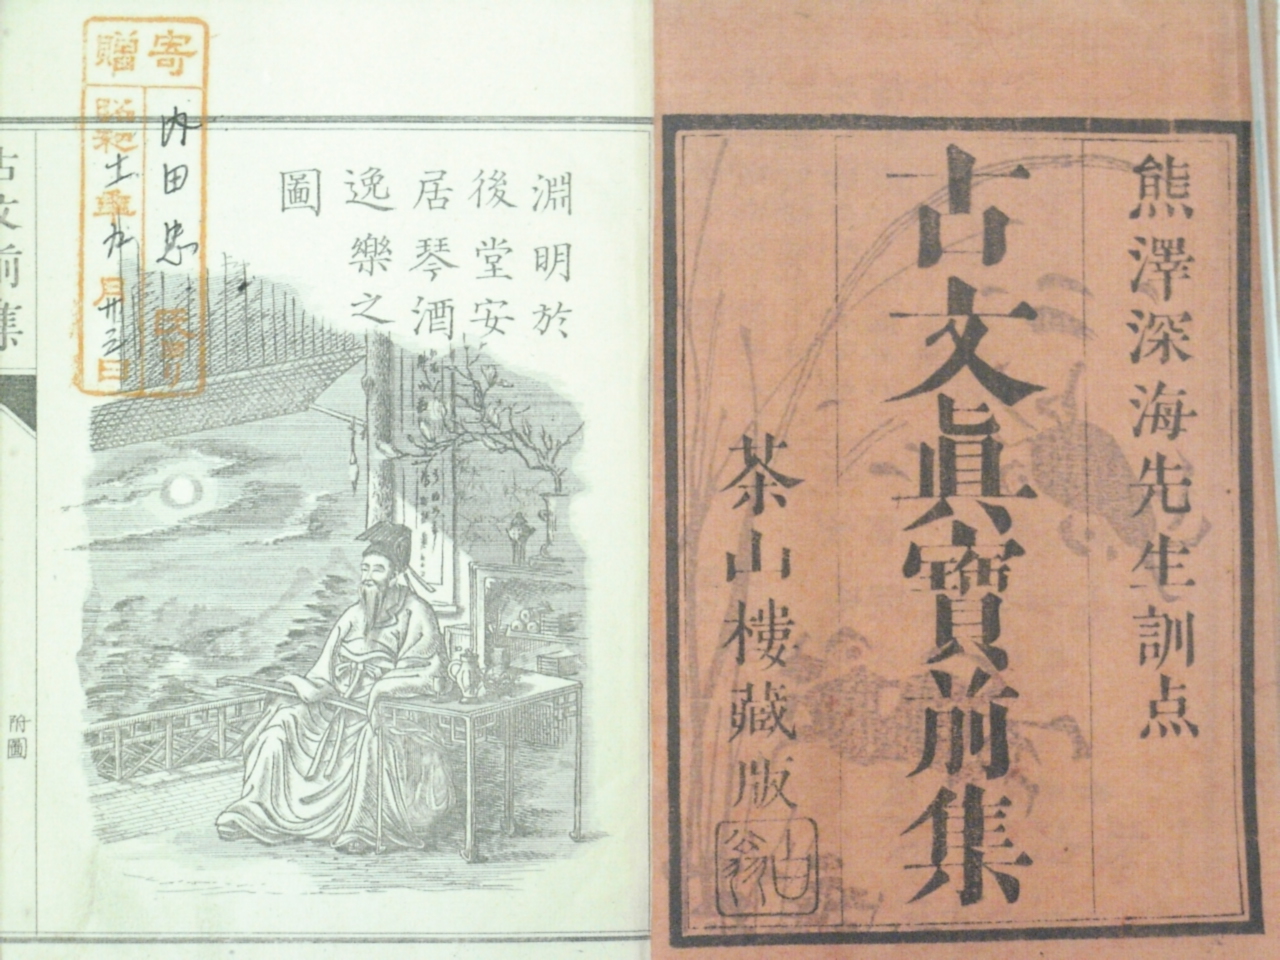 熊澤深海先生訓点
古文眞寶前集
茶山樓藏版
淵明於
後堂安
居琴酒
逸樂之
圖
寄贈
内田忠
昭和十一年九月廿三日
古文前集
附圖